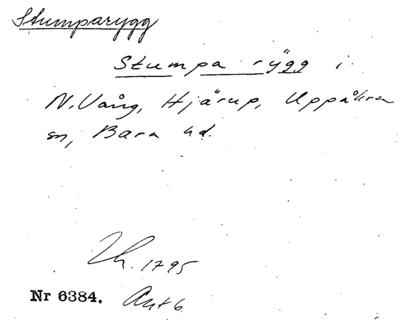 Stumparygg
Stumpa rÿgg i
N. Vång, Hjärup, Uppåkra
sn, Bara hd.
1795
Nr 6384. Akt 6